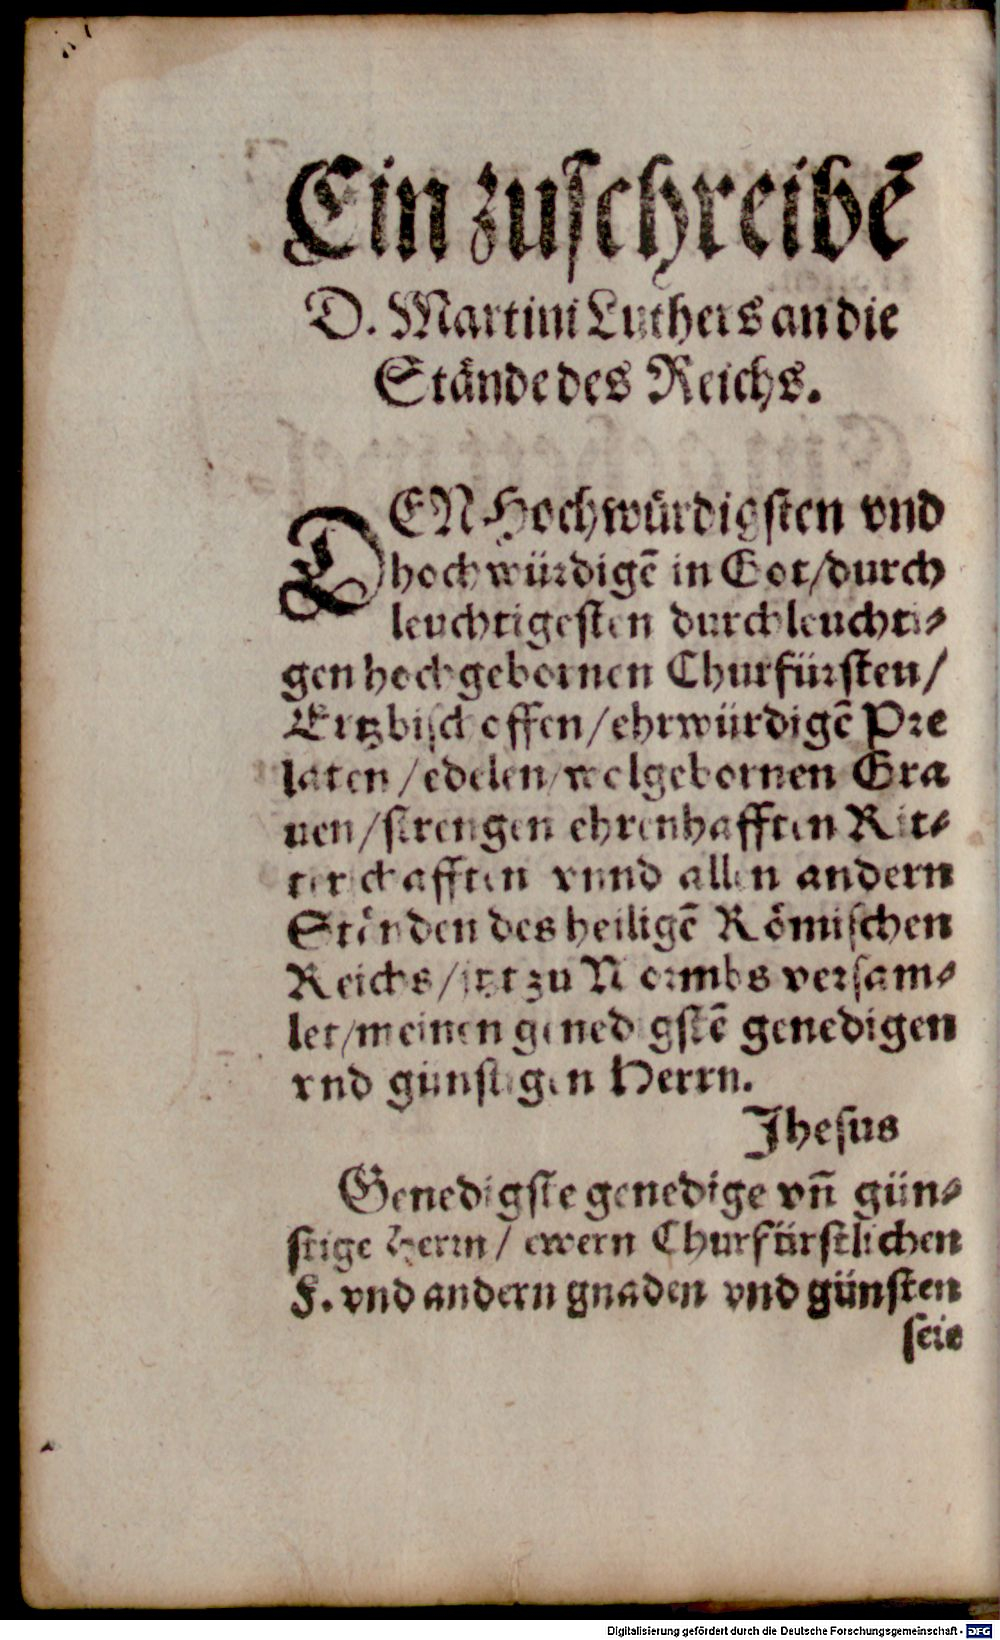 Ein zuſchreibē
D. Martini Luthers an die
Stände des Reichs.
DEN Hochwürdigſten vnd
hochwürdigē in Got/durch
leuchtigeſten durchleuchti⸗
gen hochgebornen Churfürſten/
Ertzbiſchoffen/ehrwürdigē Pre
laten/edelen/wolgebornen Gra
uen/ſtrengen ehrenhafften Rit⸗
terſchafften vnnd allen andern
Ständen des heiligē Römiſchen
Reichs/itzt zu Wormbs verſam⸗
let/meinen genedigſtē genedigen
vnd günſtigen Herrn.
Jheſus
Genedigſte genedige vñ gün⸗
ſtige Herrn/ ewern Churfürſtlichen
F. vnd andern gnaden vnd günſten
ſeie
Digitalisierung gefördert durch die Deutsche Forschungsgemeinschaft - DFG